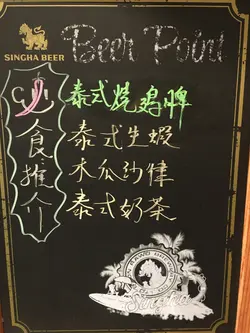 SINGHA BEER
Beer Point
小食推介
泰式烧鸡髀
泰式生蝦
木瓜沙律
泰式奶茶